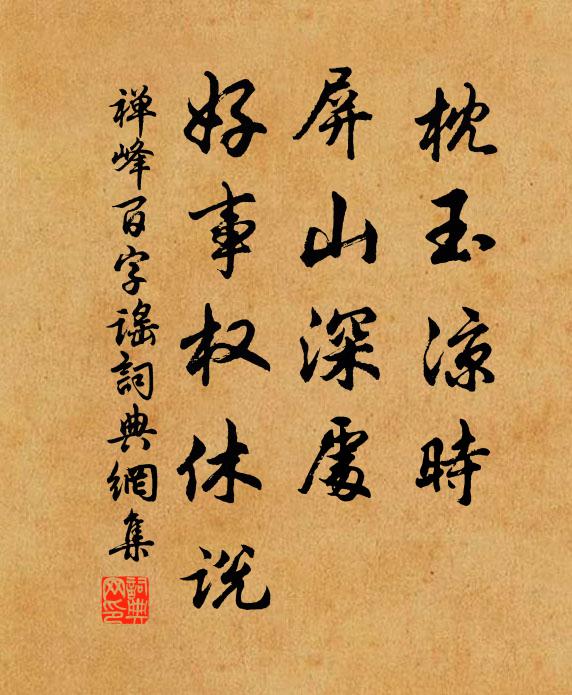 枕玉凉時
屏山深處
好事权休说
禅峰百字谣詞典網集
詞典网印